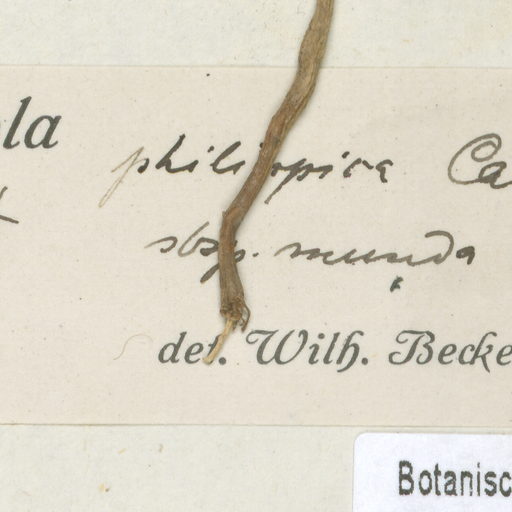 ola philippica Ca
sbsp. munda
det. Wilh. Becke
Botanisc